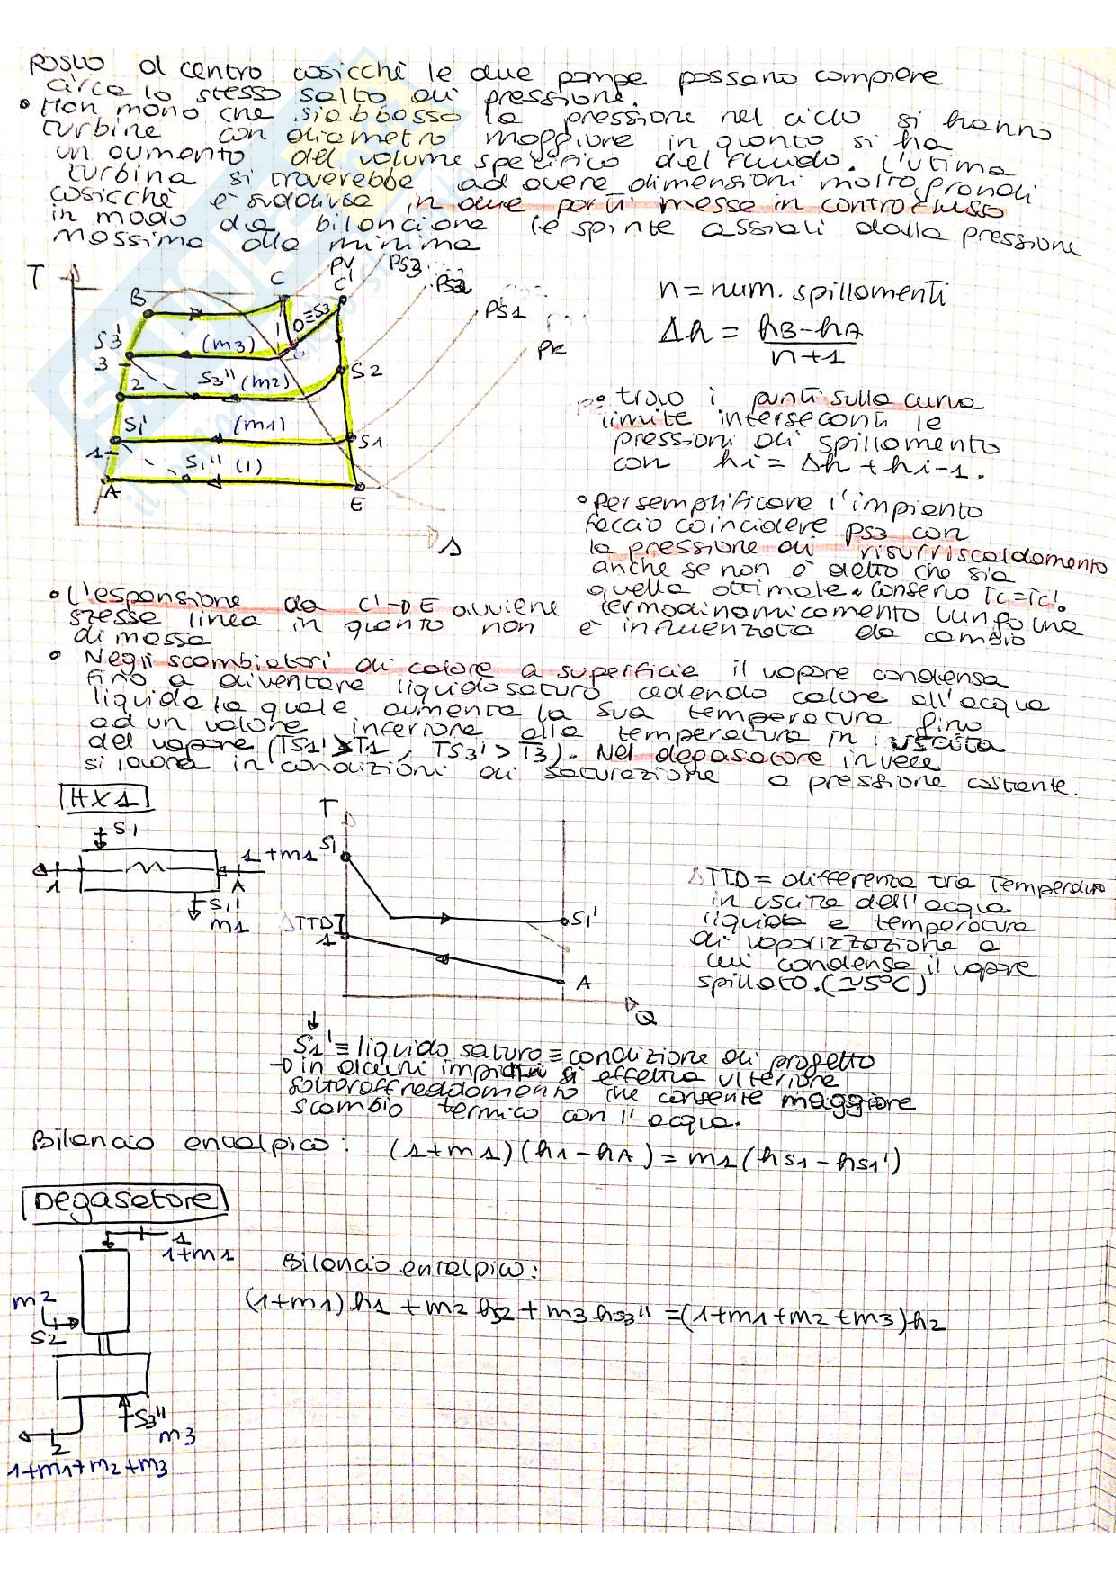 posto al centro cosicchè le due pompe possano compiere
circa lo stesso salto di pressione.
• Man mano che si abbassa la pressione nel ciclo si hanno
turbine con diametro maggiore in quanto si ha
un aumento del volume specifico del fluido. L'ultima
turbina si troverebbe ad avere dimensioni molto grandi
cosicchè è suddivisa in due parti messe in controflusso
in modo da bilanciare le spinte assiali dalla pressione
massima alla minima
T
B
C
C'
PV
PS3
PS2
PS1
PK
S3'
3
(m3)
D≡S3
2
S3'' (m2)
S2
S1'
(m1)
S1
1
S1'' (1)
A
E
s
n = num. spillamenti
Δh = hB-hA / n+1
• trovo i punti sulla curva
limite intersecanti le
pressioni di spillamento
con hi = Δh + hi-1.
• Per semplificare l'impianto
faccio coincidere PS3 con
la pressione di risurriscaldamento
anche se non è detto che sia
quella ottimale. Conservo Tc=Tc'.
• L'espansione da C'→E avviene termodinamicamento lungo una
stessa linea in quanto non è influenzata da cambio
di massa
• Negli scambiatori di calore a superficie il vapore condensa
fino a diventare liquido saturo cedendo calore all'acqua
liquida la quale aumenta la sua temperatura fino
ad un valore inferiore alla temperatura in uscita
del vapore (TS1' > T1, TS3' > T3). Nel degasatore invece
si lavora in condizioni di saturazione a pressione costante.
HX1
S1
1+m1
1
A
S1'
m1
T
S1
ΔTTD
1
S1'
A
Q
ΔTTD = differenza tra temperatura
in uscita dell'acqua
liquida e temperatura
di vaporizzazione a
cui condensa il vapore
spillato. (≃5°C)
S1' ≡ liquido saturo ≡ condizione di progetto
→ in alcuni impianti si effettua ulteriore
sottoraffreddamento che consente maggiore
scambio termico con l'acqua.
Bilancio entalpico: (1+m1)(h1-hA) = m1(hS1-hS1')
Degasatore
1
1+m1
m2
S2
S3''
m3
2
1+m1+m2+m3
Bilancio entalpico:
(1+m1)h1 + m2 hS2 + m3 hS3'' = (1+m1+m2+m3)h2